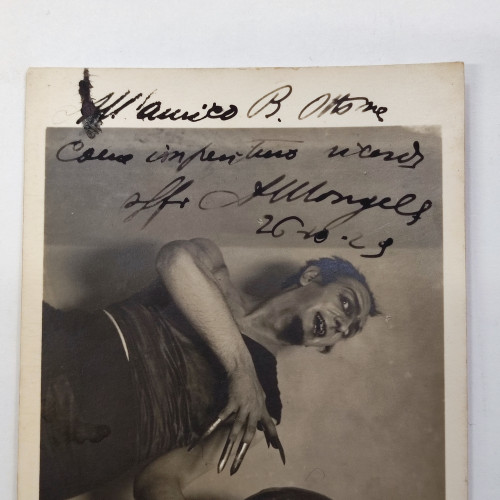 All'amico B. Ottone
Come imperituro ricordo
affr
26-10-29